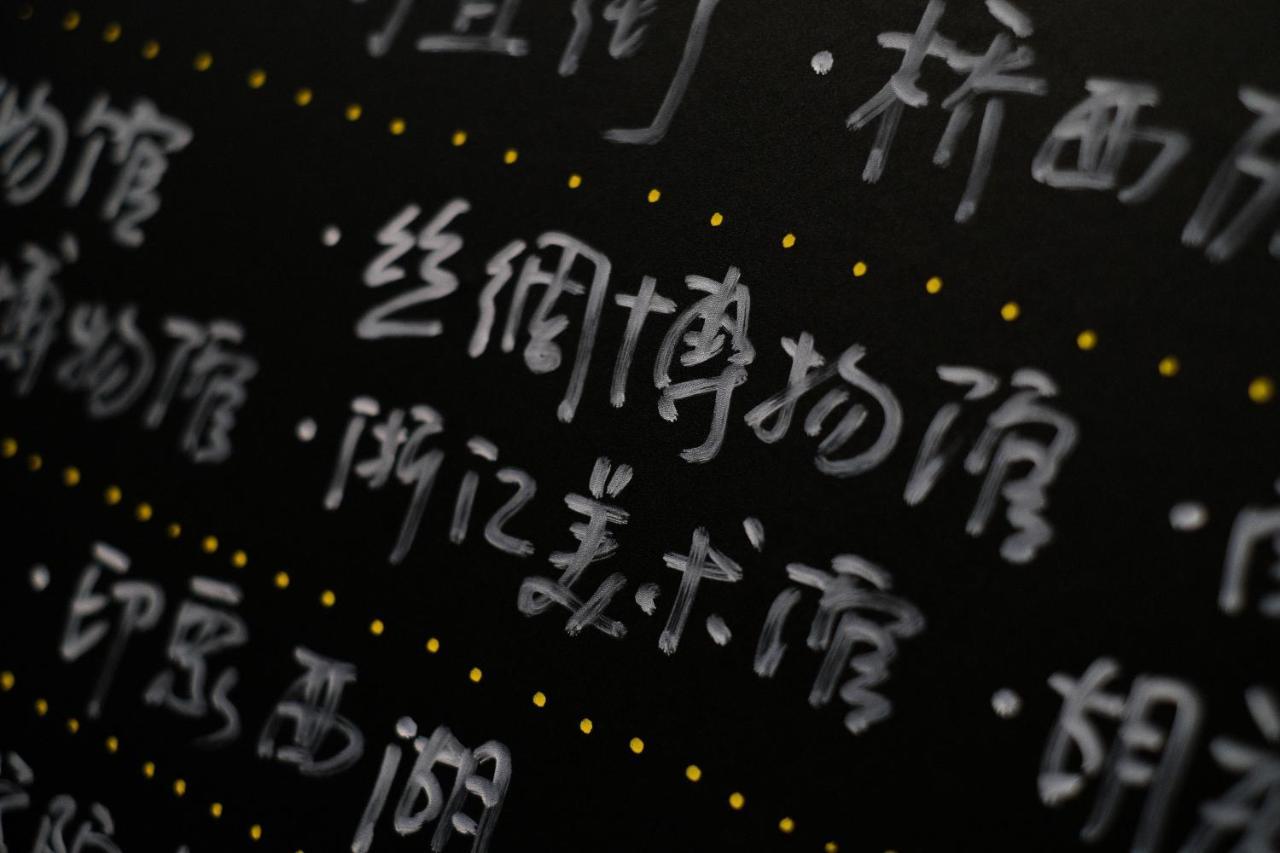 桥西
物馆
丝绸博物馆
博物馆
浙江美术馆
印象西湖
胡